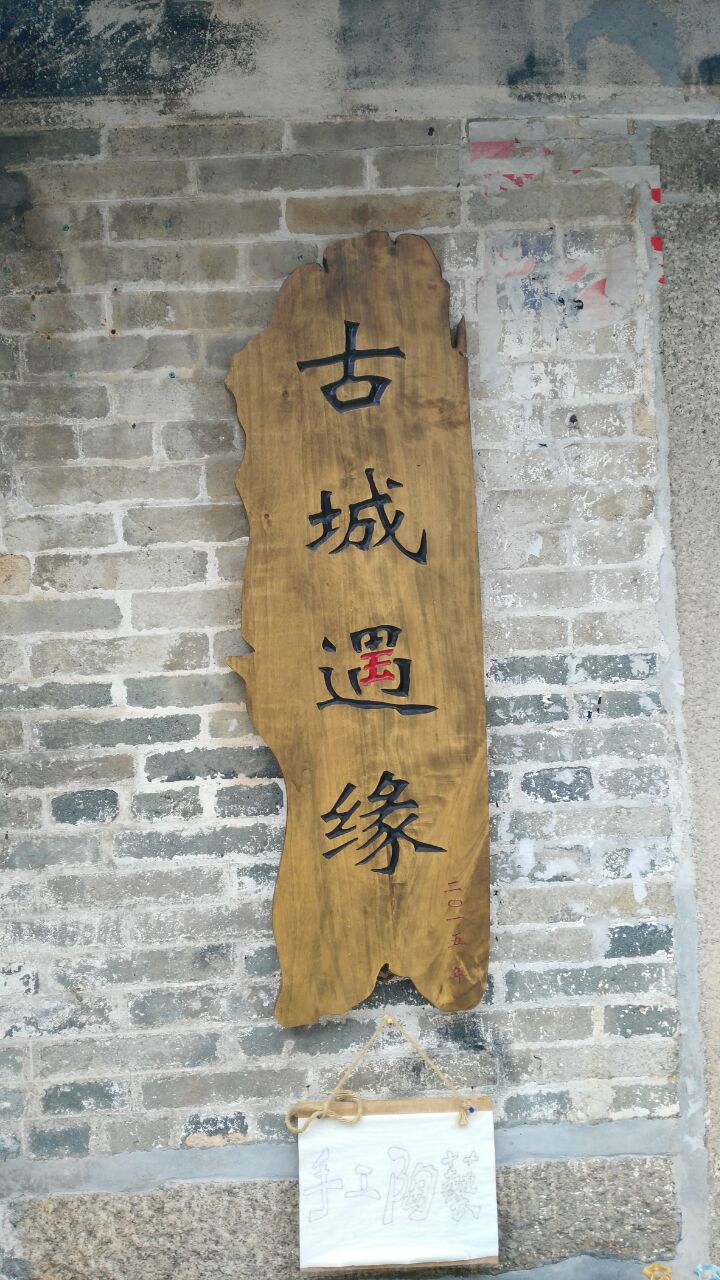 古城遇缘
二〇一五年
手工陶藝